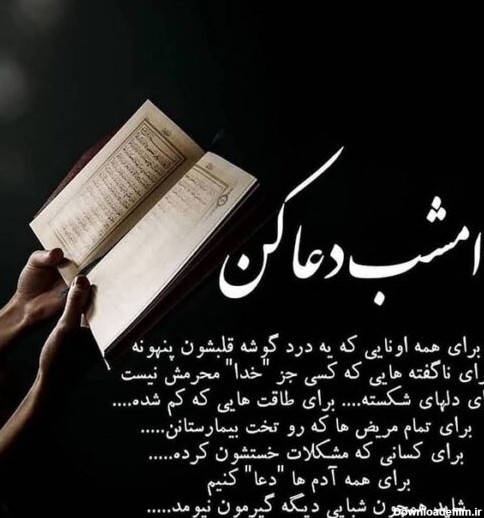 امشب دعا کن
برای همه اونایی که یه درد گوشه قلبشون پنهونه
رای ناگفته هایی که کسی جز "خدا" محرمش نیست
ی دلهای شکسته.... برای طاقت هایی که کم شده....
برای تمام مریض ها که رو تخت بیمارستانن.....
برای کسانی که مشکلات خستشون کرده.....
برای همه آدم ها "دعا" کنیم
شاید همچون شبایی دیگه گیرمون نیومد.....
Downloadefilm.ir